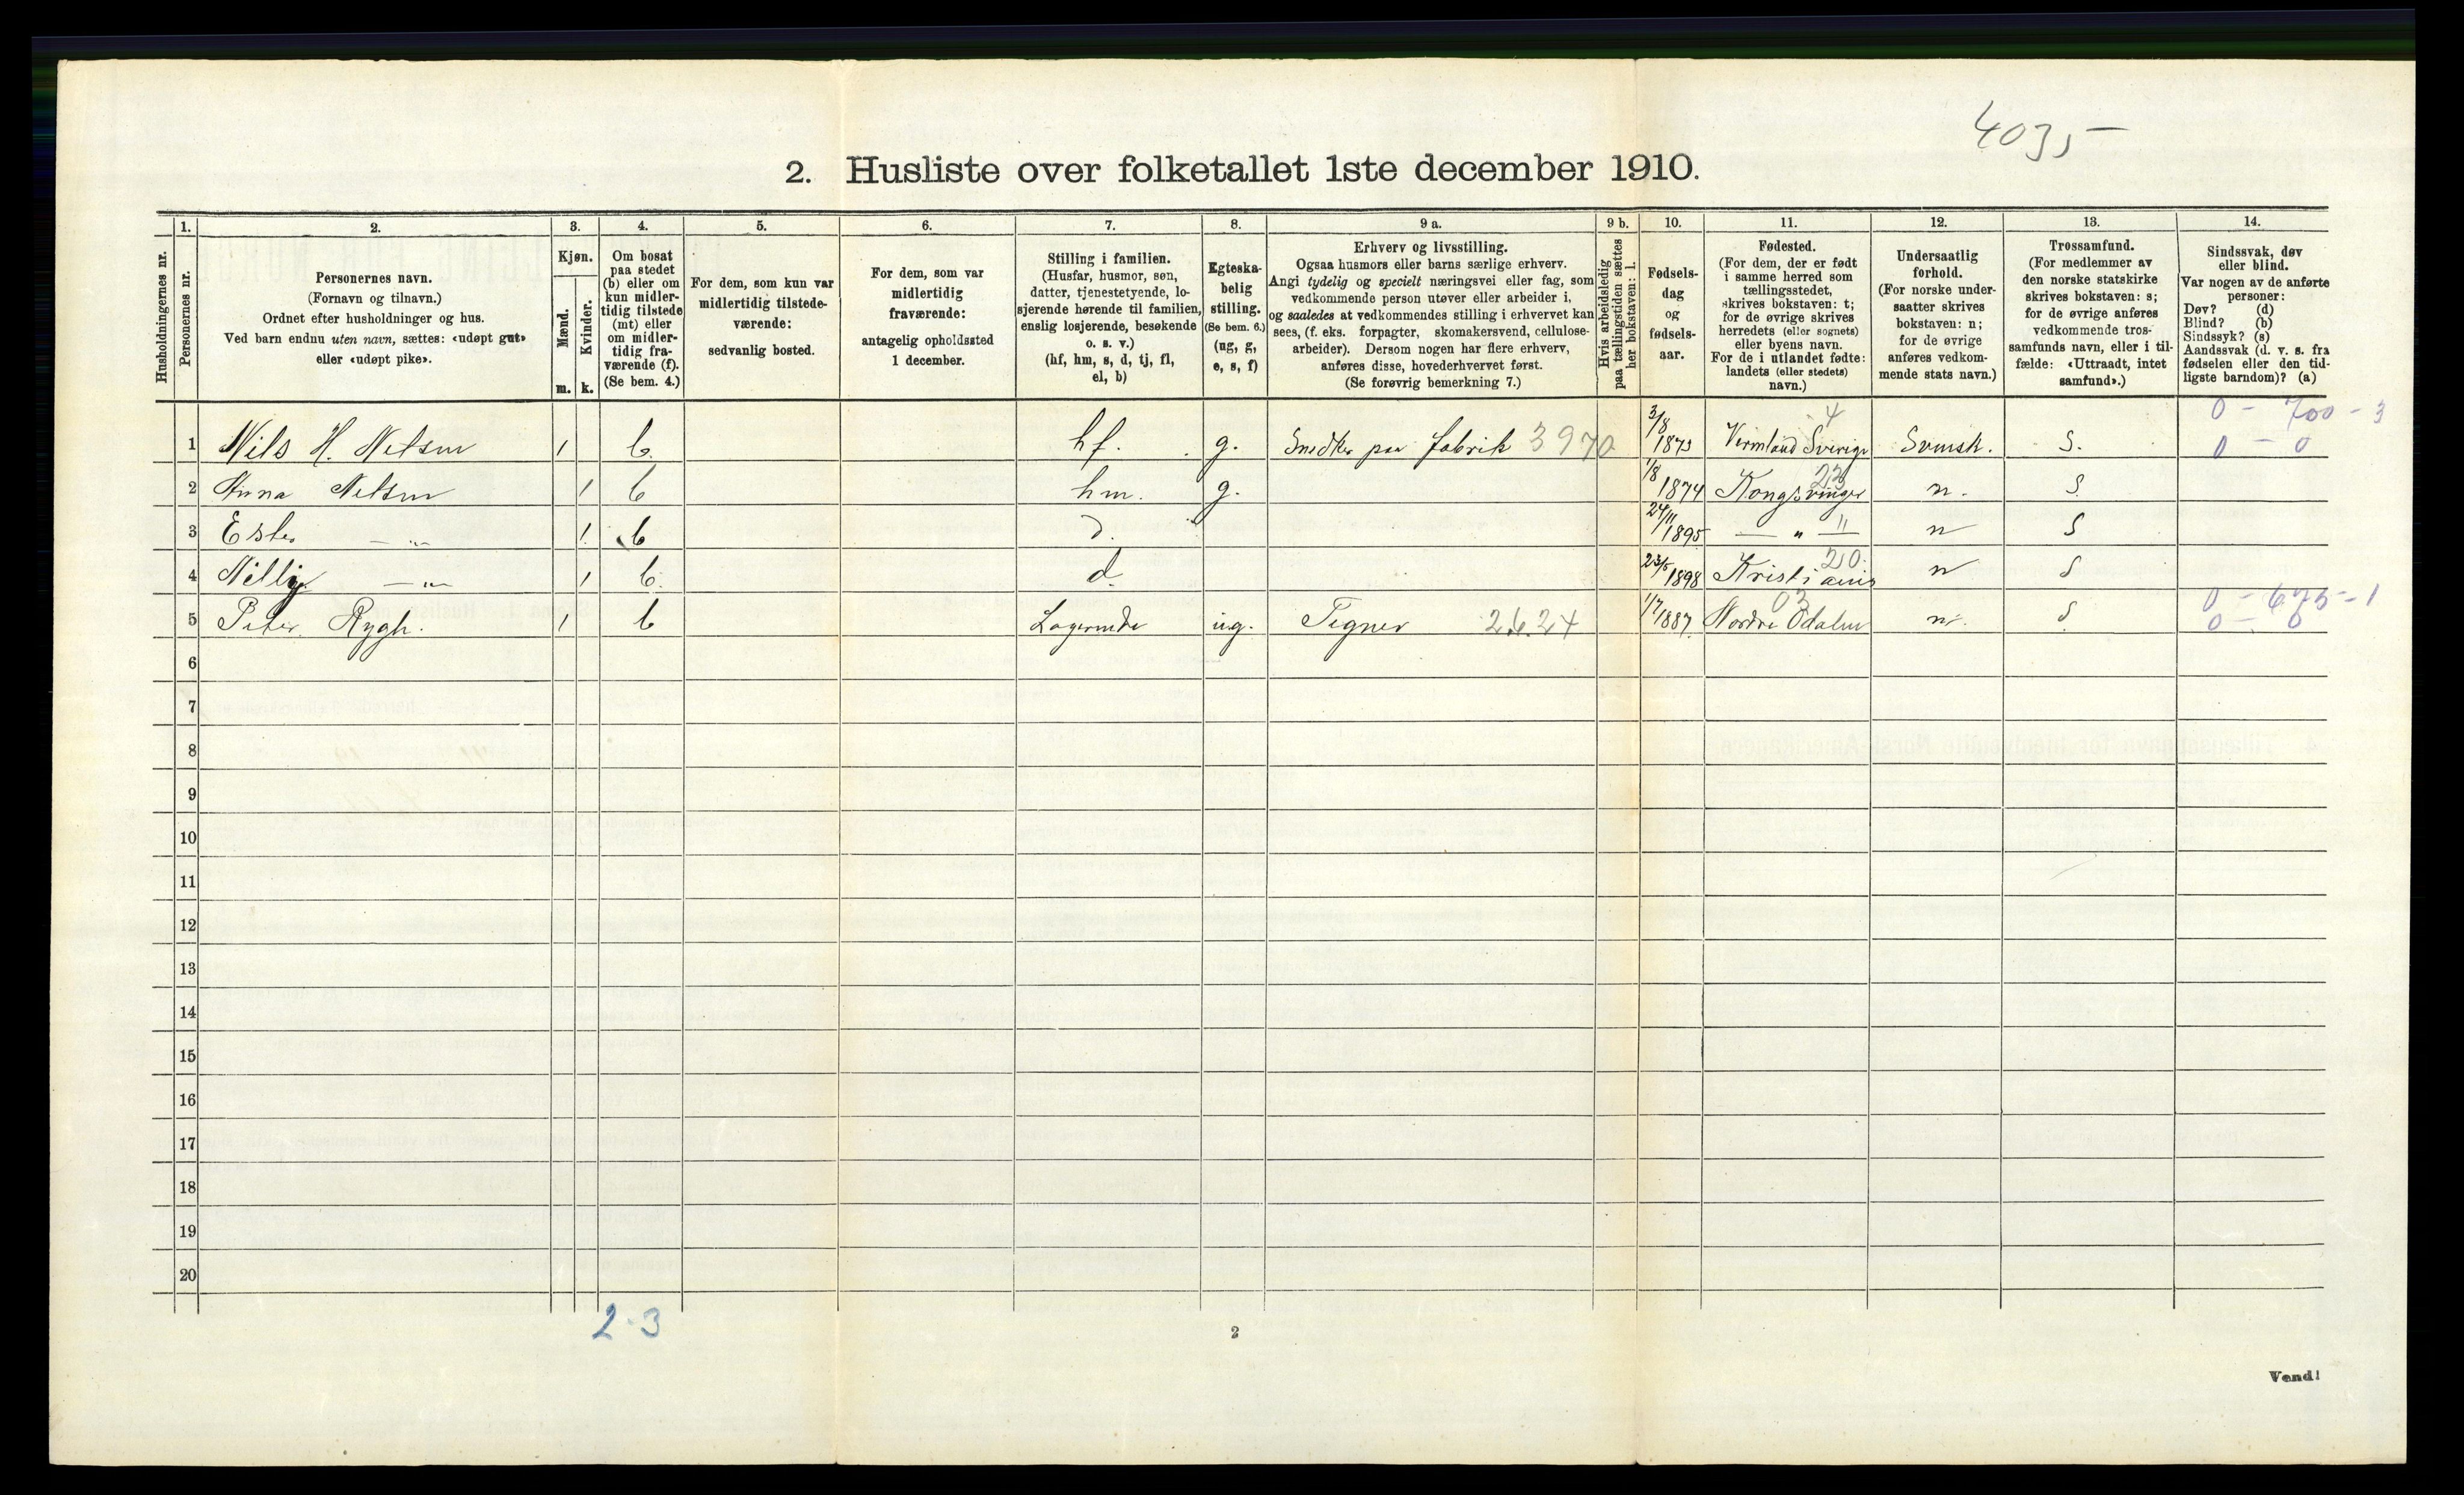 4035
2. Husliste over folketallet 1ste december 1910.
Husholdningernes nr.
1.
Personernes nr.
2.
Personernes navn.
(Fornavn og tilnavn.)
Ordnet efter husholdninger og hus.
Ved barn endnu uten navn, sættes: «udøpt gut»
eller «udøpt pike».
3.
Kjøn.
Mænd.
Kvinder.
m. k.
4.
Om bosat
paa stedet
(b) eller om
kun midler-
tidig tilstede
(mt) eller
om midler-
tidig fra-
værende (f).
(Se bem. 4.)
5.
For dem, som kun var
midlertidig tilstede-
værende:
sedvanlig bosted.
6.
For dem, som var
midlertidig
fraværende:
antagelig opholdssted
1 december.
7.
Stilling i familien.
(Husfar, husmor, søn,
datter, tjenestetyende, lo-
sjerende hørende til familien,
enslig losjerende, besøkende
o. s. v.)
(hf, hm, s, d, tj, fl,
el, b)
8.
Egteska-
belig
stilling.
(Se bem. 6.)
(ug, g,
e, s, f)
9 a.
Erhverv og livsstilling.
Ogsaa husmors eller barns særlige erhverv.
Angi tydelig og specielt næringsvei eller fag, som
vedkommende person utøver eller arbeider i,
og saaledes at vedkommendes stilling i erhvervet kan
sees, (f. eks. forpagter, skomakersvend, cellulose-
arbeider). Dersom nogen har flere erhverv,
anføres disse, hovederhvervet først.
(Se forøvrig bemerkning 7.)
9 b.
Hvis arbeidsledig
paa tællingstiden sættes
her bokstaven: l.
10.
Fødsels-
dag
og
fødsels-
aar.
11.
Fødested.
(For dem, der er født
i samme herred som
tællingsstedet,
skrives bokstaven: t;
for de øvrige skrives
herredets (eller sognets)
eller byens navn.
For de i utlandet fødte:
landets (eller stedets)
navn.)
12.
Undersaatlig
forhold.
(For norske under-
saatter skrives
bokstaven: n;
for de øvrige
anføres vedkom-
mende stats navn.)
13.
Trossamfund.
(For medlemmer av
den norske statskirke
skrives bokstaven: s;
for de øvrige anføres
vedkommende tros-
samfunds navn, eller i til-
fælde: «Uttraadt, intet
samfund».)
14.
Sindssvak, døv
eller blind.
Var nogen av de anførte
personer:
Døv? (d)
Blind? (b)
Sindssyk? (s)
Aandssvak (d. v. s. fra
fødselen eller den tid-
ligste barndom)? (a)
1 Nils H. Nelsen 1 b. hf. g. Snedker paa fabrik 3970 3/8 1873 Vermland Sverige 4 Svensk. S. 0 - 700 - 3 0 - 0
2 Anna Nelsen 1 b hm. g. 1/8 1874 Kongsvinger 23 n. S.
3 Ester — „ — 1 b d. 24/11 1895 — „ — n S
4 Nelly — „ — 1 b. d. 23/5 1898 Kristiania 20. n S
5 Peter Rygh. 1 b Logerende ug. Tegner 2624 1/7 1887. Nordre Odalen 03 n. S. 0 - 675 - 1 0 - 0
6
7
8
9
10
11
12
13
14
15
16
17
18
19
20
2-3
2
Vend!